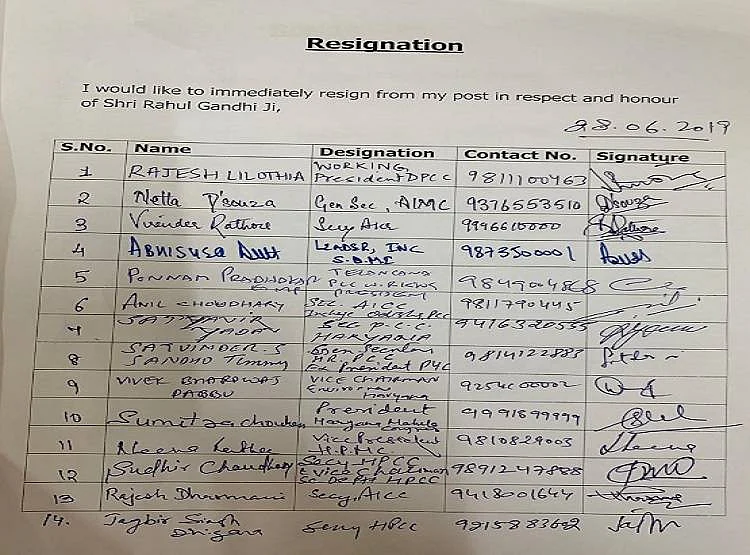 Resignation
I would like to immediately resign from my post in respect and honour
of Shri Rahul Gandhi Ji,
28.06.2019
S.No. Name Designation Contact No. Signature
1 RAJESH LILOTHIA WORKING President DPCC 9811100463
2 Netta D'souza Gen Sec, AIMC 9376553510 Dsouza
3 Virender Rathore Secy AICC 9996610000
4 LEADER, INC 9873500001
5 PONNAM PRABHAKAR TELANGANA PCC WORKING PRESIDENT
6 ANIL CHOUDHARY SEC. AICC 9811790445
7 SATYAVIR YADAV SEC P.C.C. HARYANA 9416320555
8 SATVINDER.S SANDHU Timmy Gen Secretary HR. PCC Ex President PYC 9814122883
9 VIVEK BHARDWAJ PABBU VICE CHAIRMAN Haryana 9254600002
10 Sumitra Chouhan President Haryana Mahila Congress 9991899999
11 Vice President H.P.M.C 9810829003
12 Sudhir Chaudhary Secy HPCC SC DEPTT HPCC 9891247888
13 Rajesh Dharmani Secy, AICC 9418001644
14. Jagbir Singh Secy HPCC